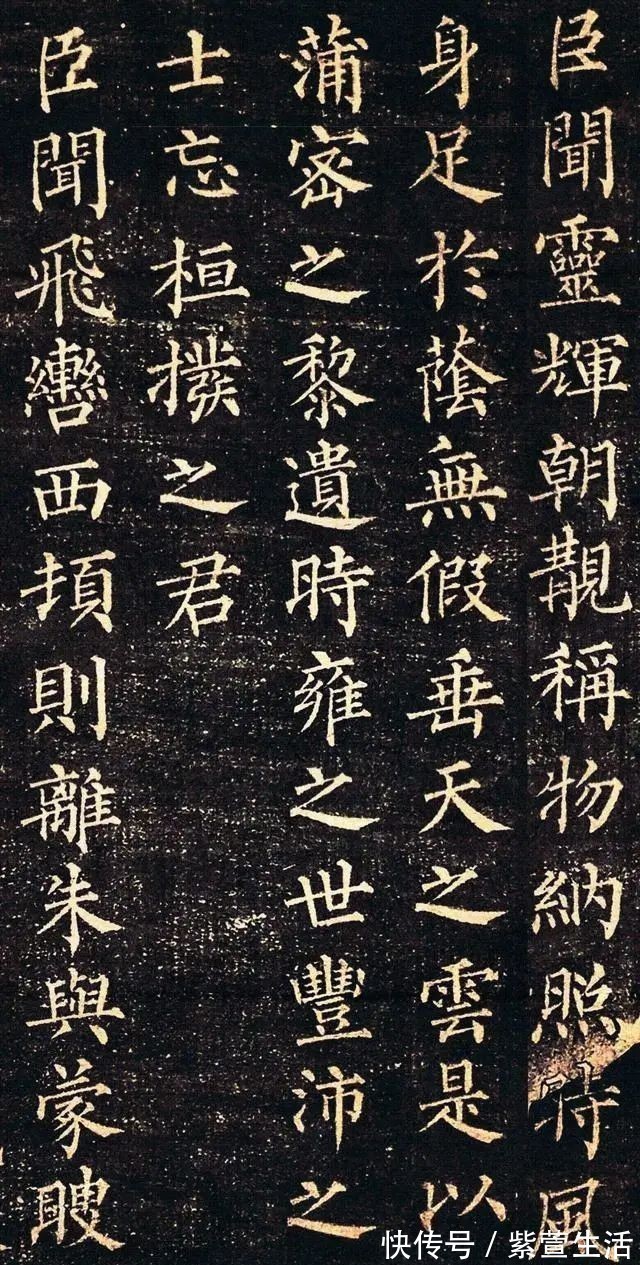 臣聞靈輝朝覯稱物納照時風
身足於蔭無假垂天之雲是以
蒲密之黎遺時雍之世豐沛之
士忘桓撥之君
臣聞飛轡西頓則離朱與蒙瞍
快传号 / 紫萱生活